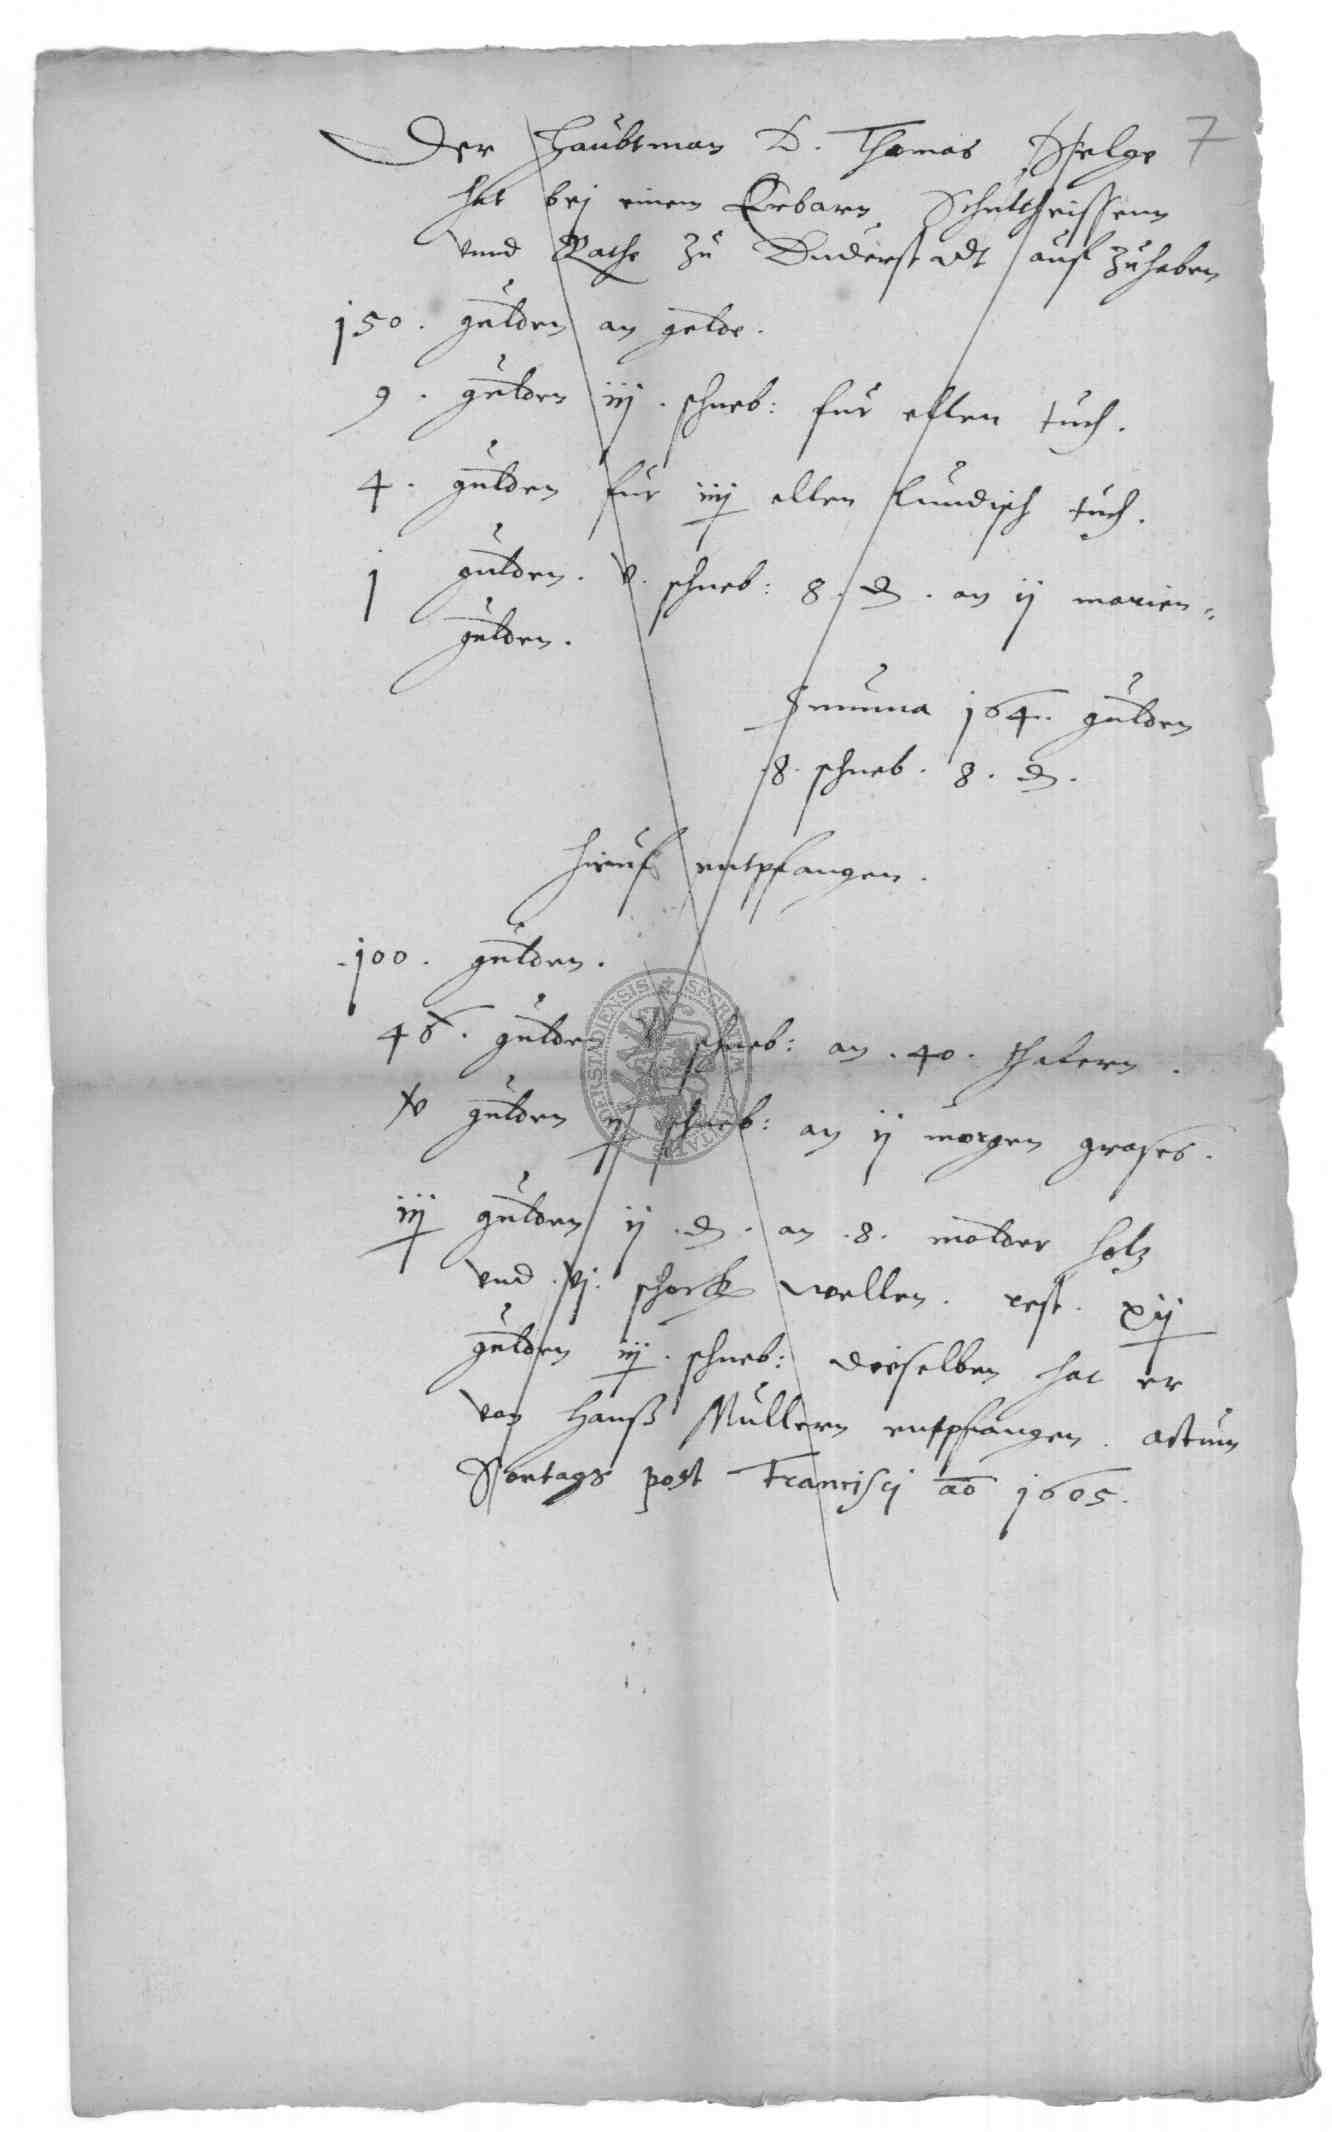 Der Haubtman D. Thomas Selge 7
hat bej einem Erbarn Schultheissenn
vnnd Rathe zu Duderstadt auf zuhaben
150. gulden an gelde.
9. gulden iij. schneb: fur ellen tuch.
4. gulden fur iiij ellen lundisch tuch.
j gulden. v. schneb: 8. ₰. an ij marien-
gulden.
Summa 164. gulden
.8. schneb. 8. ₰.
hirauf entpfangen.
.100. gulden.
46. gulden schneb: an .40. thalern.
xv gulden ij schneb: an ij morgen grases.
iij gulden ij ₰. an .8. molder holz
vnd .vj. schock wellen. rest. xij
gulden iij. schneb: dieselben hat er
von Hanß Müllern entpfangen. actum
Sontags post Francisci ao 1605.
SECRETUM CIVITATIS DUDERSTADIENSIS